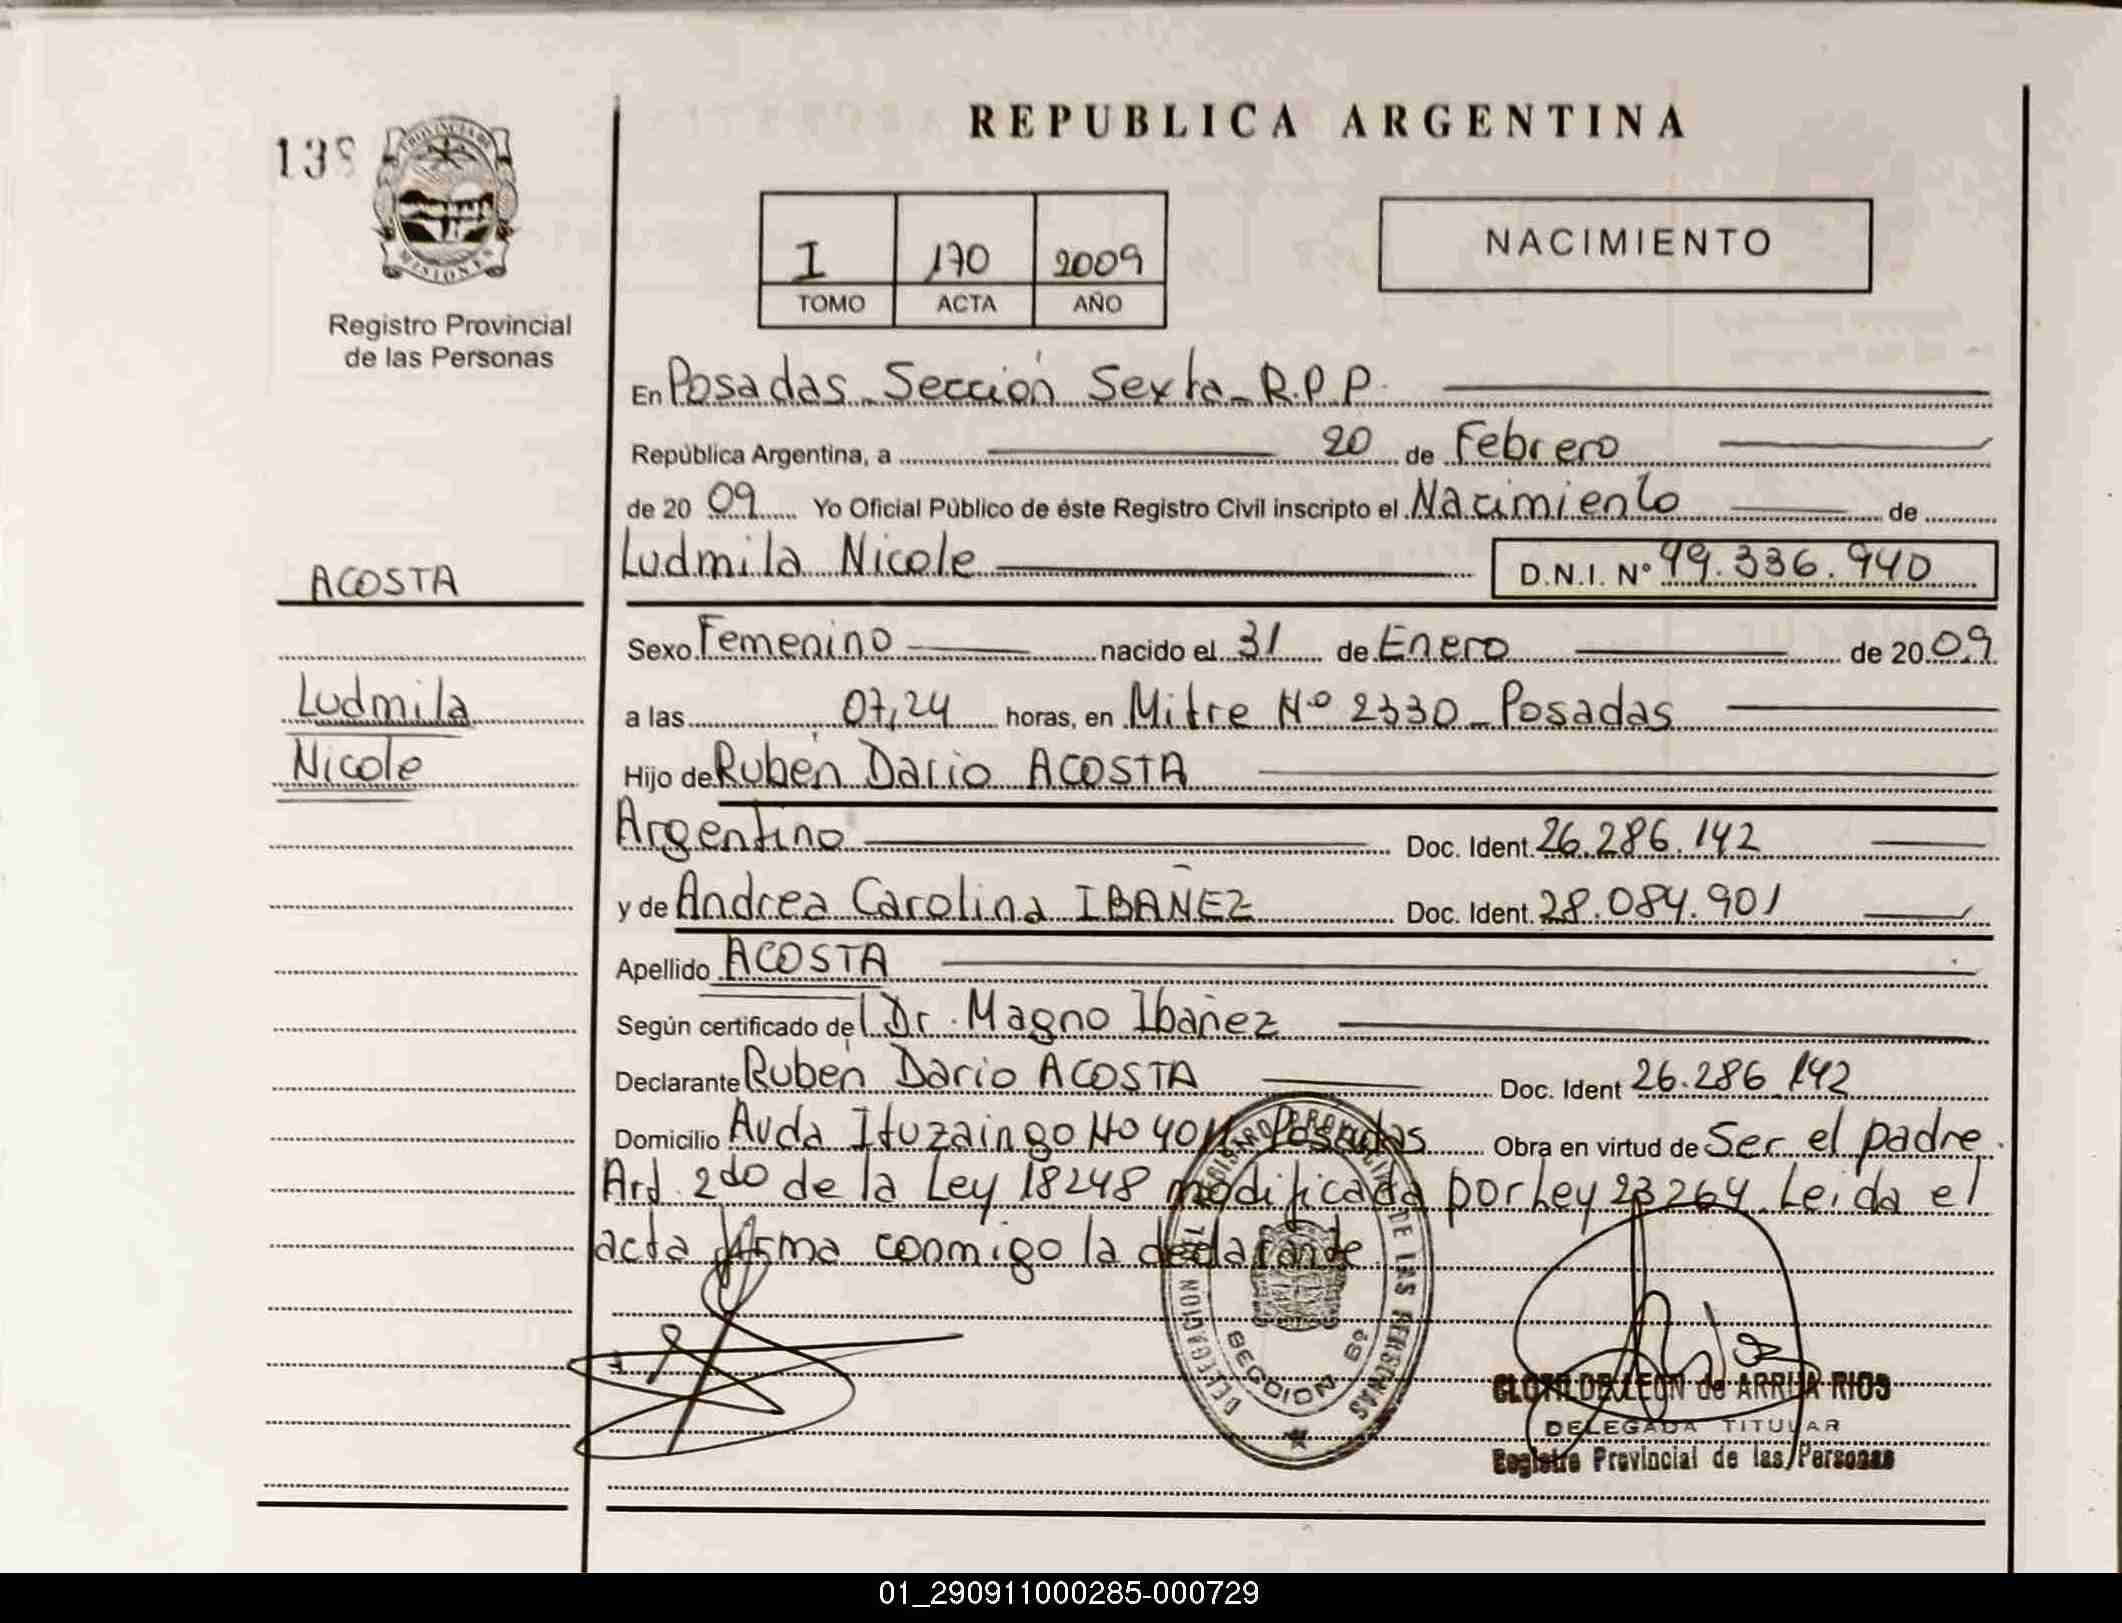 REPUBLICA ARGENTINA
139
PROVINCIA DE
MISIONES
Registro Provincial
de las Personas
I 170 2009
TOMO ACTA AÑO
NACIMIENTO
En Posadas Sección Sexta R.P.P.
República Argentina, a 20 de Febrero
de 20 09 Yo Oficial Público de éste Registro Civil inscripto el Nacimiento de
Ludmila Nicole D.N.I. Nº 49.336.940
ACOSTA
Sexo Femenino nacido el 31 de Enero de 20 09
Ludmila
a las 07,24 horas, en Mitre Nº 2330 Posadas
Nicole
Hijo de Rubén Dario ACOSTA
Argentino Doc. Ident. 26.286.142
y de Andrea Carolina IBAÑEZ Doc. Ident. 28.084.901
Apellido ACOSTA
Según certificado del Dr. Magno Ibañez
Declarante Rubén Dario ACOSTA Doc. Ident 26.286.142
Domicilio Avda Ituzaingo Nº Posadas Obra en virtud de Ser el padre.
Art. 2do de la Ley 18248 modificada por Ley 23264. Leida el
acta firma conmigo la declarante
REGISTRO PROVINCIAL DE LAS PERSONAS
DELEGACION
SECCION 6º
CLOTILDE LEON de ARRUA RIOS
DELEGADA TITULAR
Registro Provincial de las Personas
01_290911000285-000729